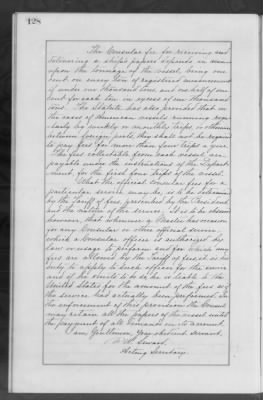 128
The Consular fee for receiving and
delivering a ship's papers depends in
upon the tonnage of the vessel, being one
cent on every ton of registered measurement
if under one thousand tons, and one half of one
cent for each ton in excess of one thousand
tons. The Statute also provides that in
the case of American vessels running regu-
larly by weekly or monthly trips, or otherwise
between foreign ports, they shall not be required
to pay fees for more than four trips a year.
The fees collectable from such vessels are
payable under the instructions of the Depart-
ment, for the first four trips of the vessel.
What the official consular fee for a
particular service may be, is to be determined
by the Tariff of fees, prescribed by the President
and the nature of the service. It is to be observed
however, that whenever a Master has occasion
for any Consular or other official service
which a Consular officer is authorized by
law or usage to perform and for which any
fees are allowed by the tariff of fees, it is his
duty to apply to such officer for the service
and if he omits to do so he is liable to the
United States for the amount of the fees as if
the service had actually been performed. In
the enforcement of this provision the Consul
may retain all the papers of the vessel until
the payment of all demands on its account.
I am, Gentlemen, Your obedient servant,
F. W. Seward,
Acting Secretary.